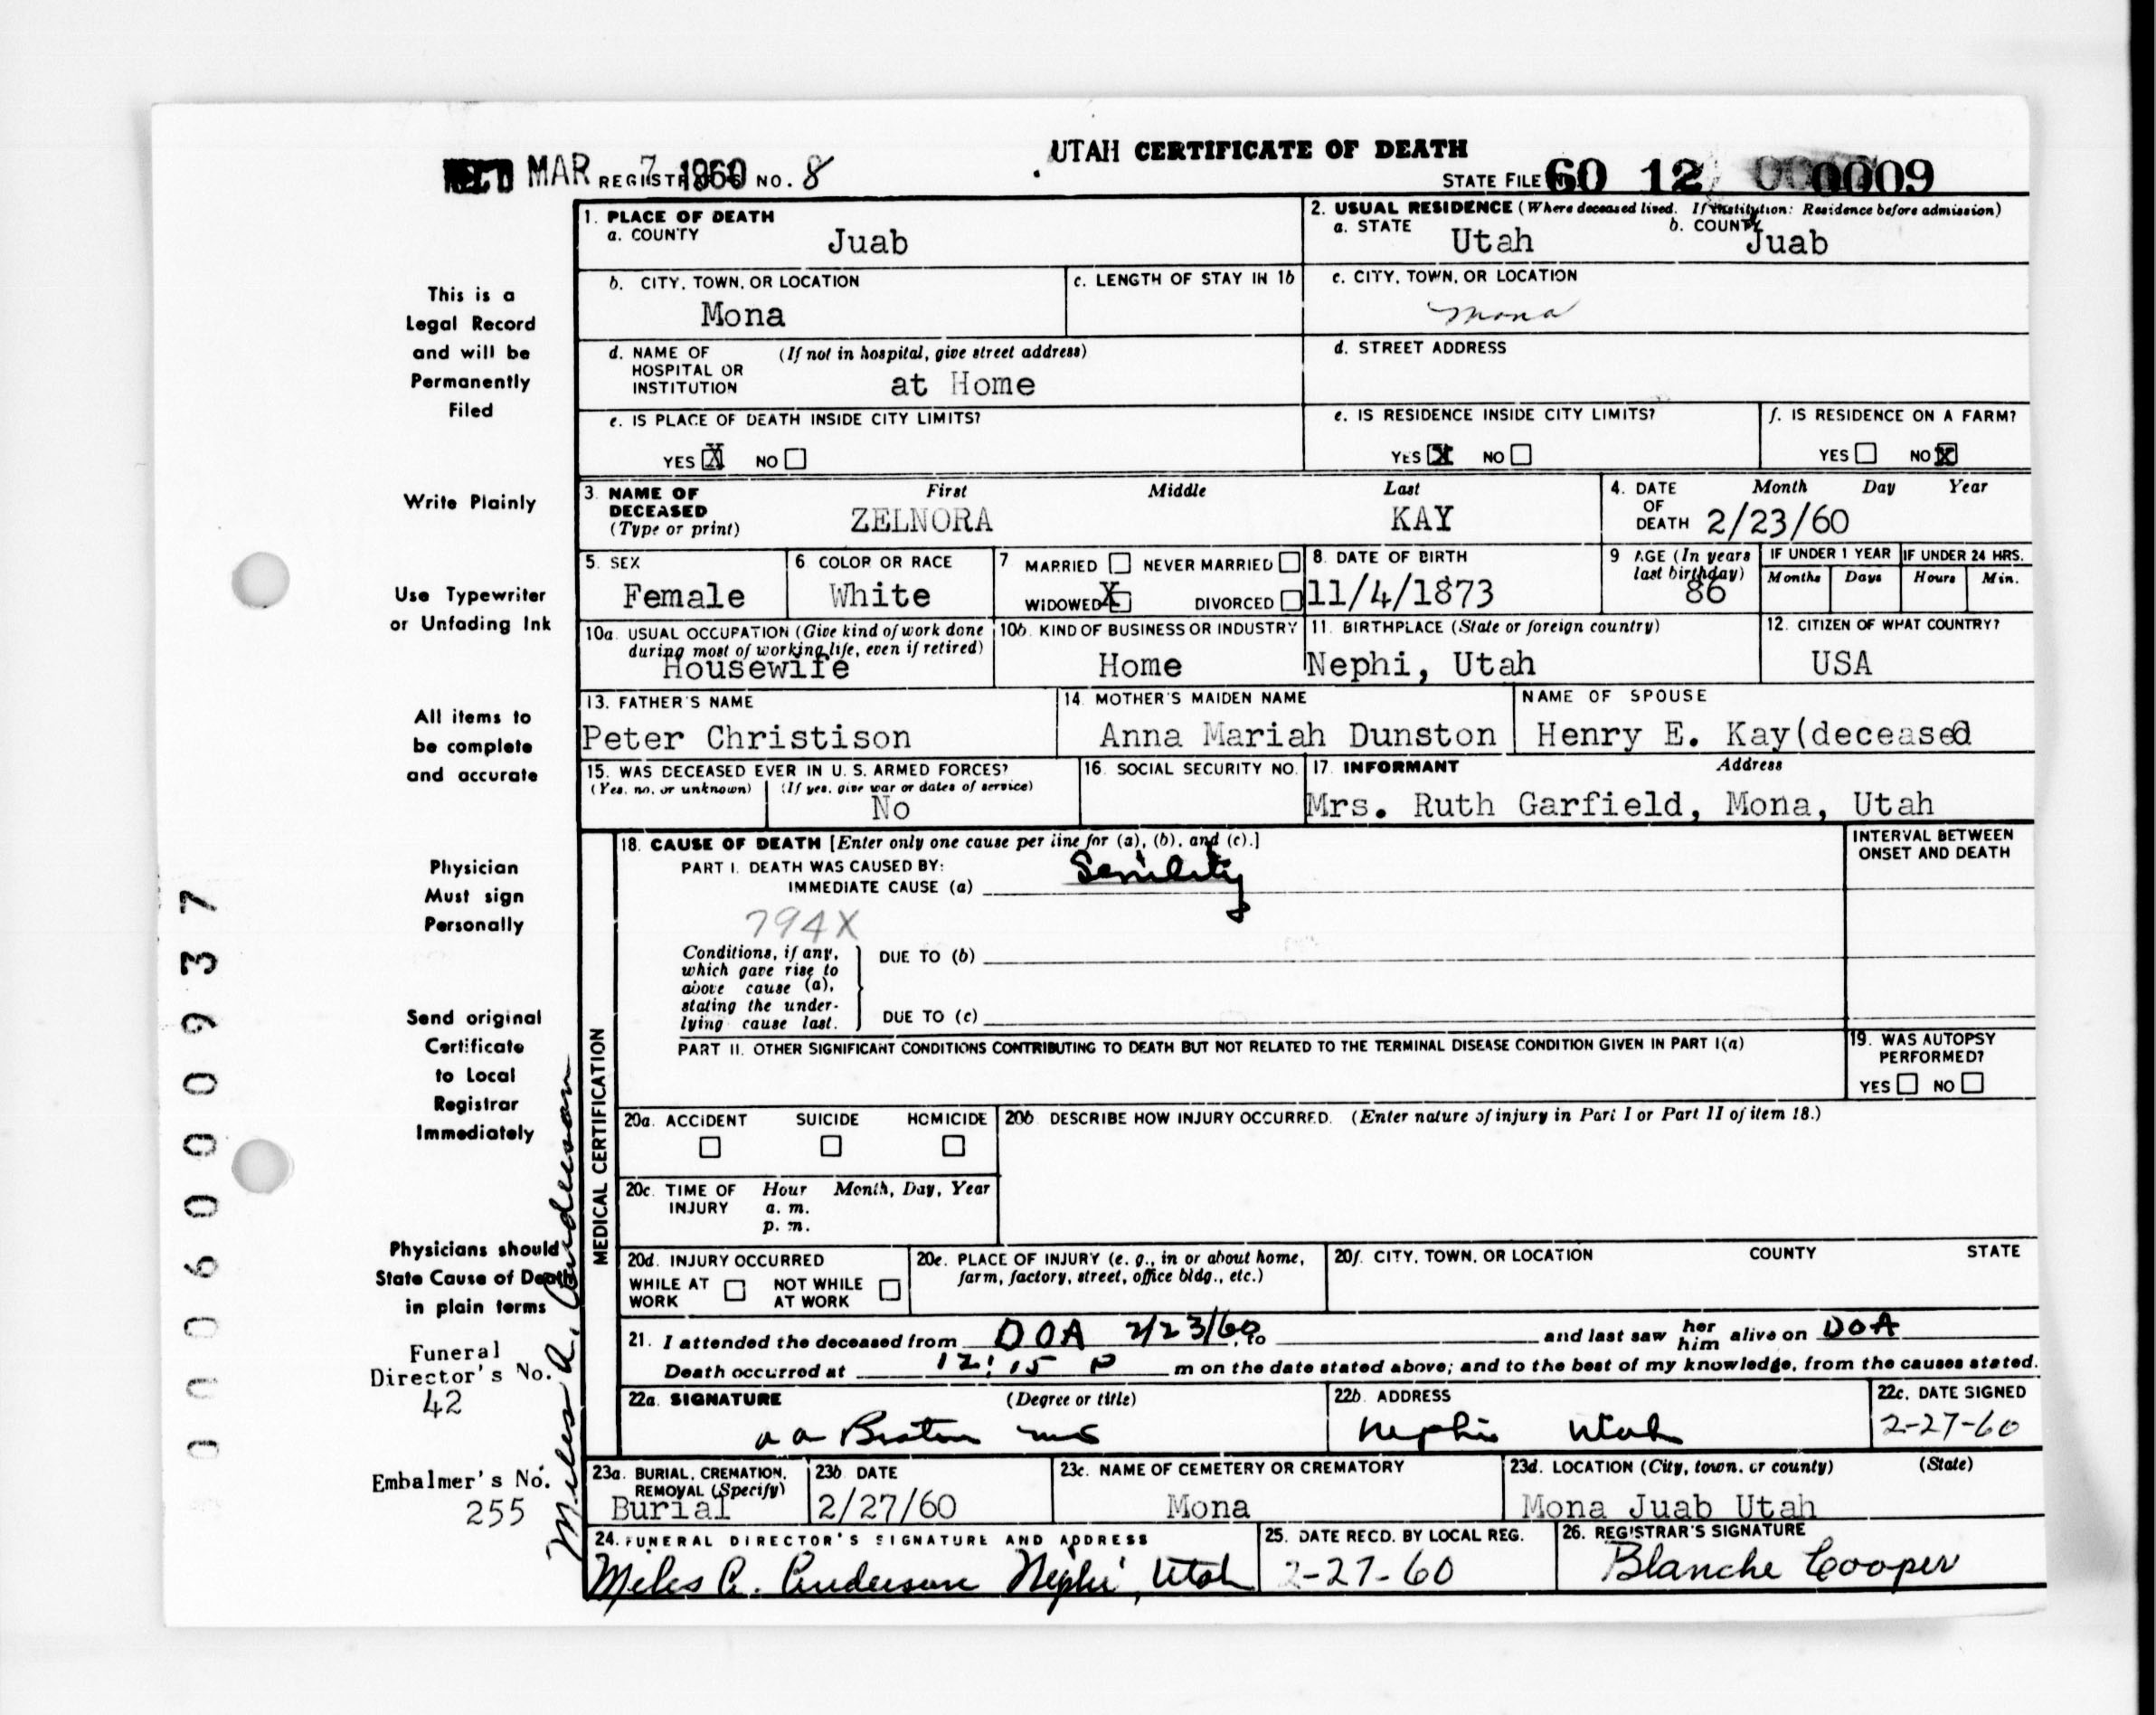 UTAH CERTIFICATE OF DEATH
REC'D MAR 7 1960 REGISTRAR'S NO. 8
STATE FILE 60 12 0009
1. PLACE OF DEATH
a. COUNTY Juab
2. USUAL RESIDENCE (Where deceased lived. If institution: Residence before admission)
a. STATE Utah b. COUNTY Juab
b. CITY, TOWN, OR LOCATION
Mona
c. LENGTH OF STAY IN 1b
c. CITY, TOWN, OR LOCATION
Mona
d. NAME OF HOSPITAL OR INSTITUTION (If not in hospital, give street address)
at Home
d. STREET ADDRESS
e. IS PLACE OF DEATH INSIDE CITY LIMITS?
YES X NO
e. IS RESIDENCE INSIDE CITY LIMITS?
YES X NO
f. IS RESIDENCE ON A FARM?
YES NO X
3. NAME OF DECEASED (Type or print)
First Middle Last
ZELNORA KAY
4. DATE OF DEATH Month Day Year
2/23/60
5. SEX
Female
6. COLOR OR RACE
White
7 MARRIED NEVER MARRIED
WIDOWED X DIVORCED
8. DATE OF BIRTH
11/4/1873
9 AGE (In years last birthday)
86
IF UNDER 1 YEAR
Months Days
IF UNDER 24 HRS.
Hours Min.
10a. USUAL OCCUPATION (Give kind of work done during most of working life, even if retired)
Housewife
10b. KIND OF BUSINESS OR INDUSTRY
Home
11. BIRTHPLACE (State or foreign country)
Nephi, Utah
12. CITIZEN OF WHAT COUNTRY?
USA
13. FATHER'S NAME
Peter Christison
14. MOTHER'S MAIDEN NAME
Anna Mariah Dunston
NAME OF SPOUSE
Henry E. Kay(deceased
15. WAS DECEASED EVER IN U. S. ARMED FORCES?
(Yes, no, or unknown) (If yes, give war or dates of service)
No
16. SOCIAL SECURITY NO.
17. INFORMANT Address
Mrs. Ruth Garfield, Mona, Utah
MEDICAL CERTIFICATION
18. CAUSE OF DEATH [Enter only one cause per line for (a), (b), and (c).]
PART I. DEATH WAS CAUSED BY:
IMMEDIATE CAUSE (a) Senility
794X
INTERVAL BETWEEN
ONSET AND DEATH
Conditions, if any,
which gave rise to
above cause (a),
stating the under-
lying cause last.
DUE TO (b)
DUE TO (c)
PART II. OTHER SIGNIFICANT CONDITIONS CONTRIBUTING TO DEATH BUT NOT RELATED TO THE TERMINAL DISEASE CONDITION GIVEN IN PART I(a)
19. WAS AUTOPSY PERFORMED?
YES NO
20a. ACCIDENT SUICIDE HOMICIDE
20b. DESCRIBE HOW INJURY OCCURRED. (Enter nature of injury in Part I or Part II of item 18.)
20c. TIME OF INJURY Hour Month, Day, Year
a. m.
p. m.
20d. INJURY OCCURRED
WHILE AT WORK NOT WHILE AT WORK
20e. PLACE OF INJURY (e. g., in or about home, farm, factory, street, office bldg., etc.)
20f. CITY, TOWN, OR LOCATION COUNTY STATE
21. I attended the deceased from DOA 2/23/60, to and last saw her him alive on DOA
Death occurred at 12:15 P m on the date stated above; and to the best of my knowledge, from the causes stated.
22a. SIGNATURE (Degree or title)
22b. ADDRESS
Nephi Utah
22c. DATE SIGNED
2-27-60
23a. BURIAL, CREMATION, REMOVAL (Specify)
Burial
23b. DATE
2/27/60
23c. NAME OF CEMETERY OR CREMATORY
Mona
23d. LOCATION (City, town, or county) (State)
Mona Juab Utah
24. FUNERAL DIRECTOR'S SIGNATURE AND ADDRESS
Miles A. Anderson Nephi, Utah
25. DATE RECD. BY LOCAL REG.
2-27-60
26. REGISTRAR'S SIGNATURE
Blanche Cooper
This is a
Legal Record
and will be
Permanently
Filed
Write Plainly
Use Typewriter
or Unfading Ink
All items to
be complete
and accurate
Physician
Must sign
Personally
Send original
Certificate
to Local
Registrar
Immediately
Physicians should
State Cause of Death
in plain terms
Funeral
Director's No.
42
Embalmer's No.
255
Miles A. Anderson
0006000937